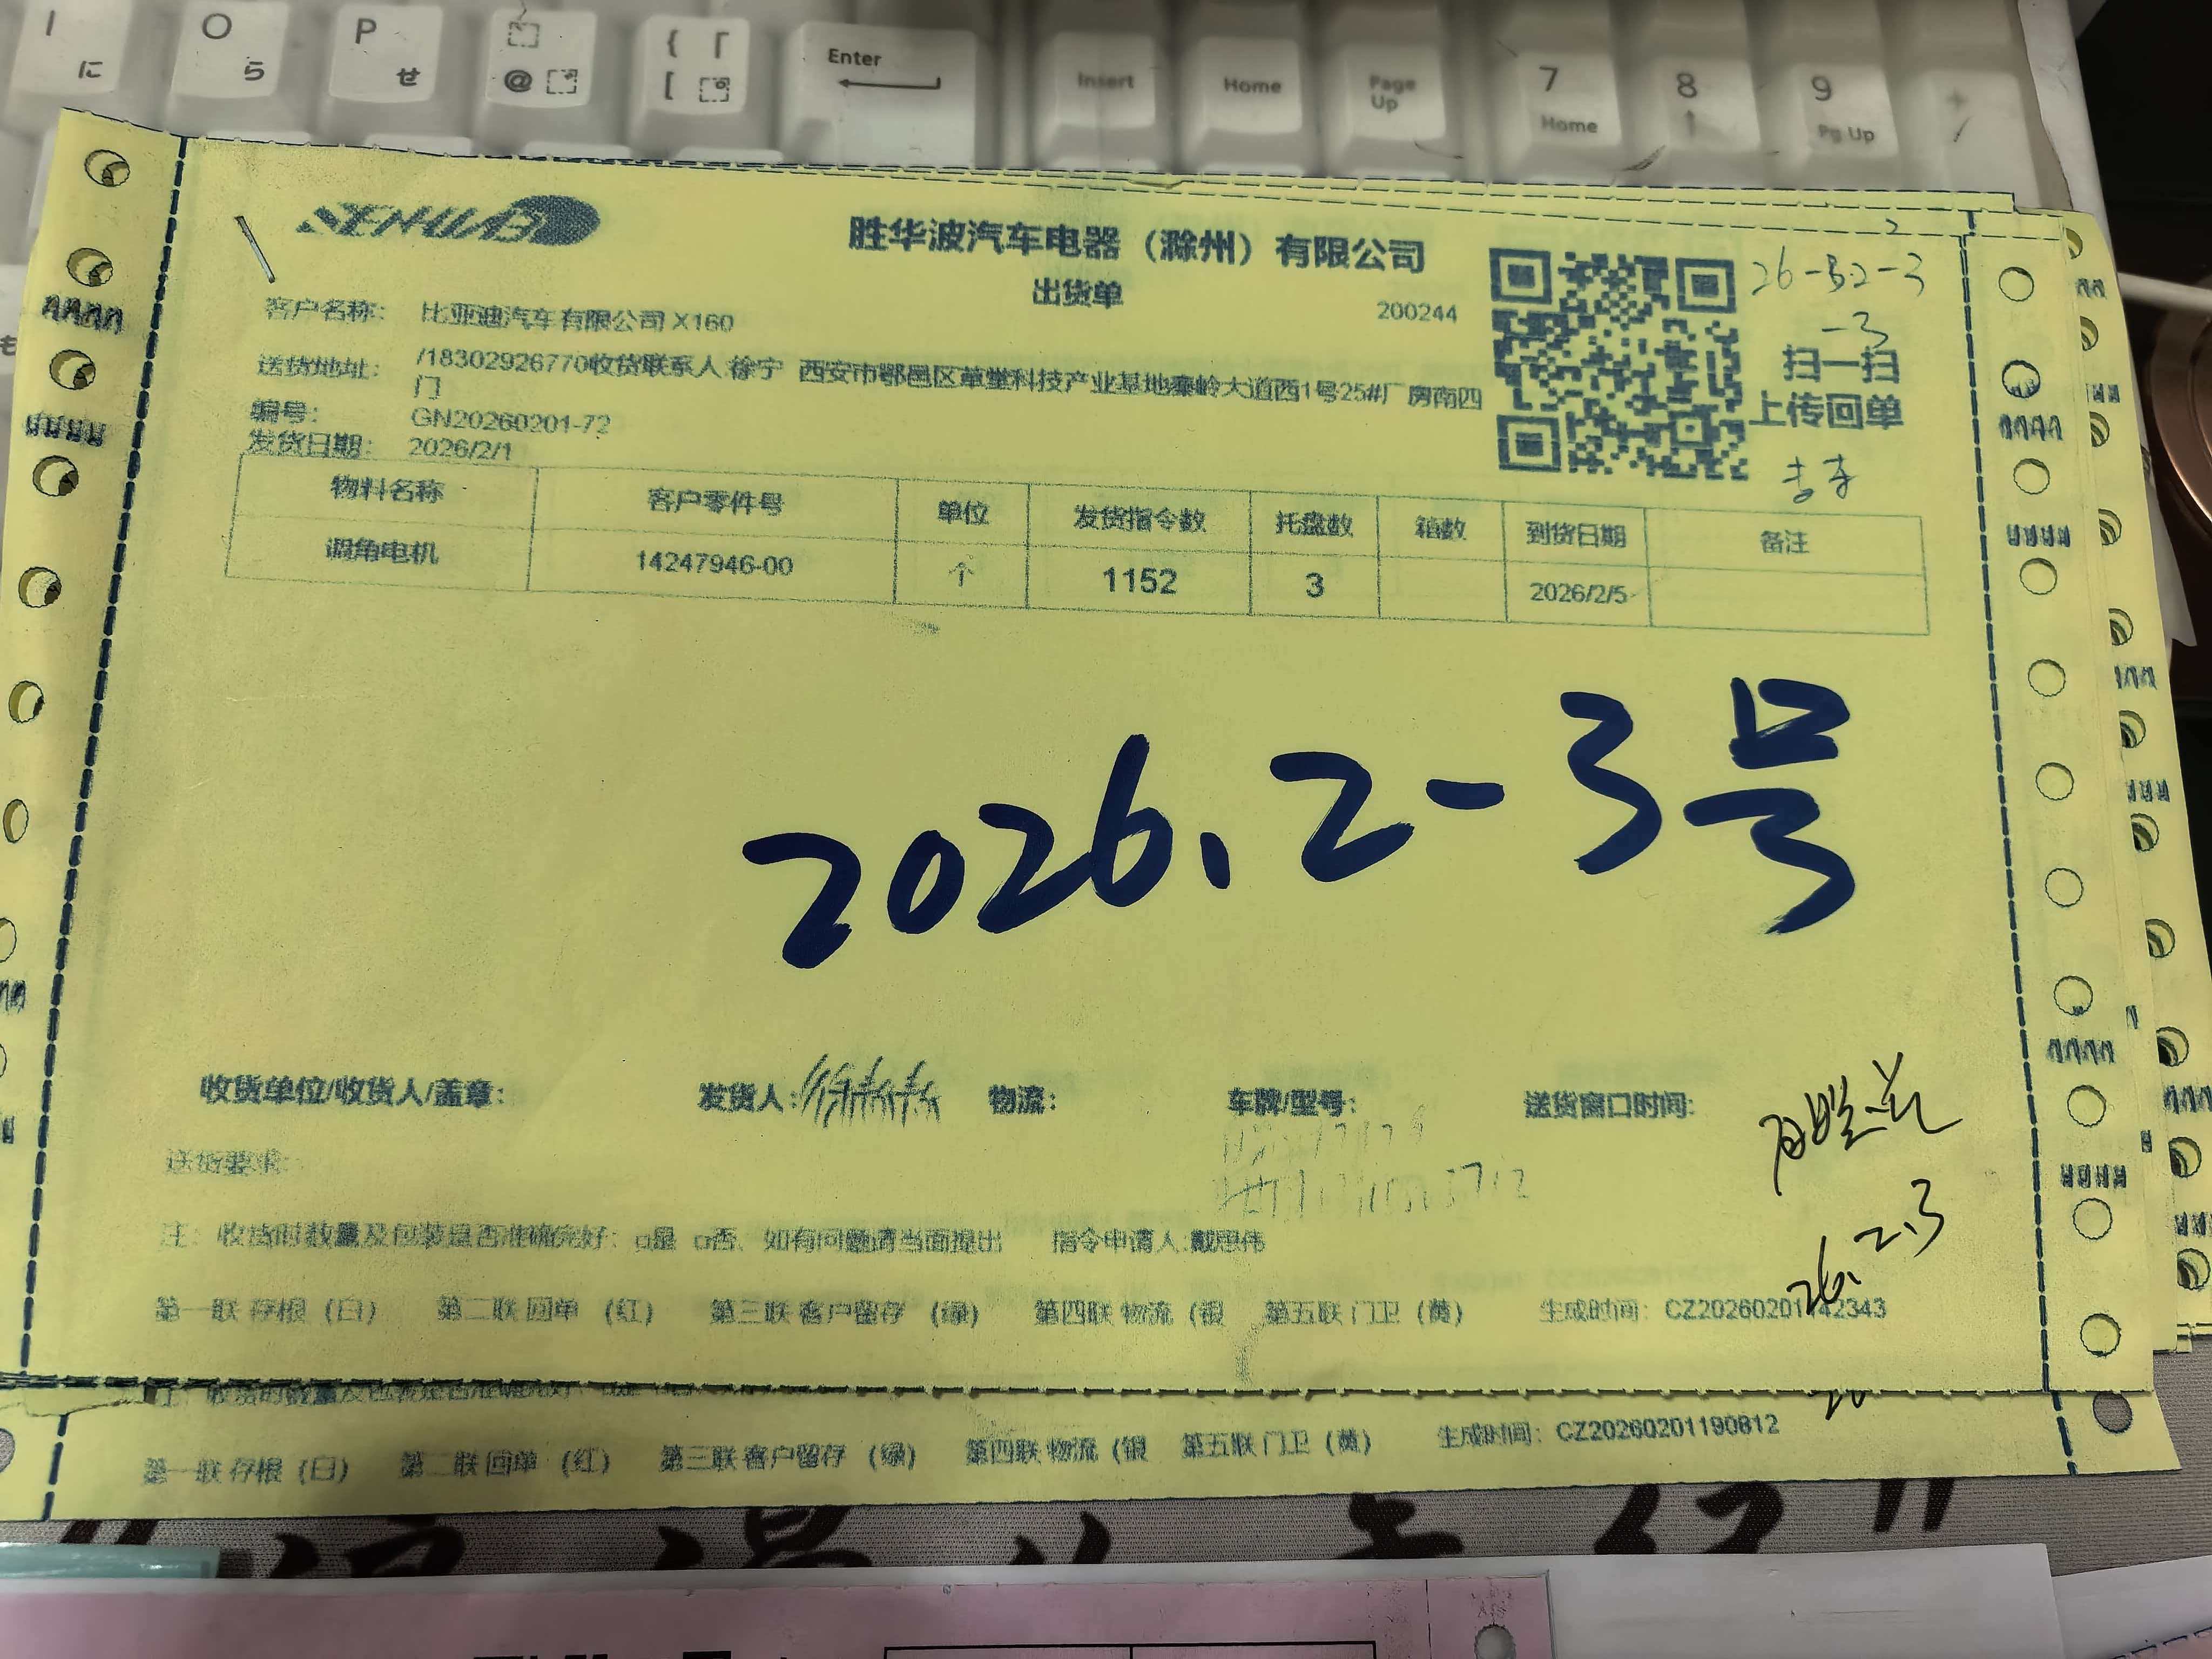 I に
O ら
P せ
@
{ 「
[
Enter
Insert
Home
Page Up
7 Home
8
9 Pg Up
胜华波汽车电器（滁州）有限公司
出货单
200244
26-
-3
扫一扫
上传回单
客户名称： 比亚迪汽车有限公司 X160
送货地址： /18302926770收货联系人 徐宁 西安市鄠邑区草堂科技产业基地秦岭大道西1号25#厂房南四
门
编号： GN20260201-72
发货日期： 2026/2/1
物料名称 客户零件号 单位 发货指令数 托盘数 箱数 到货日期 备注
调角电机 14247946-00 个 1152 3 2026/2/5
2026.2-3号
收货单位/收货人/盖章： 发货人： 物流： 车牌/型号： 送货窗口时间：
送货要求：
26.2.3
注：收货时数量及包装是否准确完好：□是 □否、如有问题请当面提出 指令申请人:戴思伟
第一联 存根（白） 第二联 回单（红） 第三联 客户留存（绿） 第四联 物流（银 第五联 门卫（黄） 生成时间：
第一联 存根（白） 第二联 回单（红） 第三联 客户留存（绿） 第四联 物流（银 第五联 门卫（黄） 生成时间：CZ20260201190812